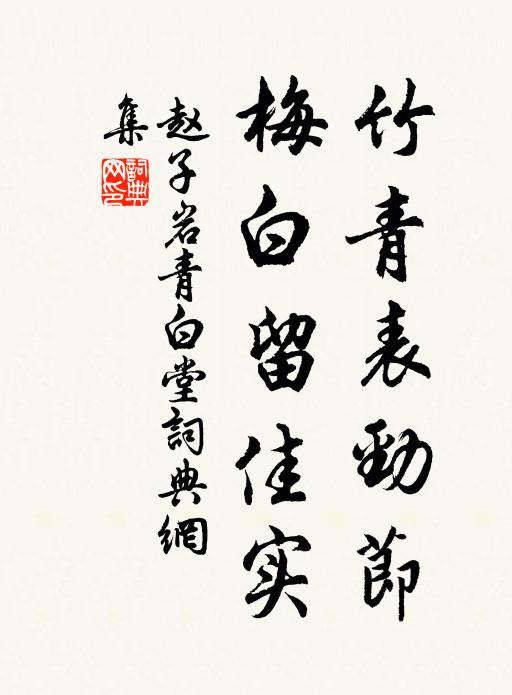 竹青表勁節
梅白留佳实
赵子岩青白堂詞典網
集
詞典
网印